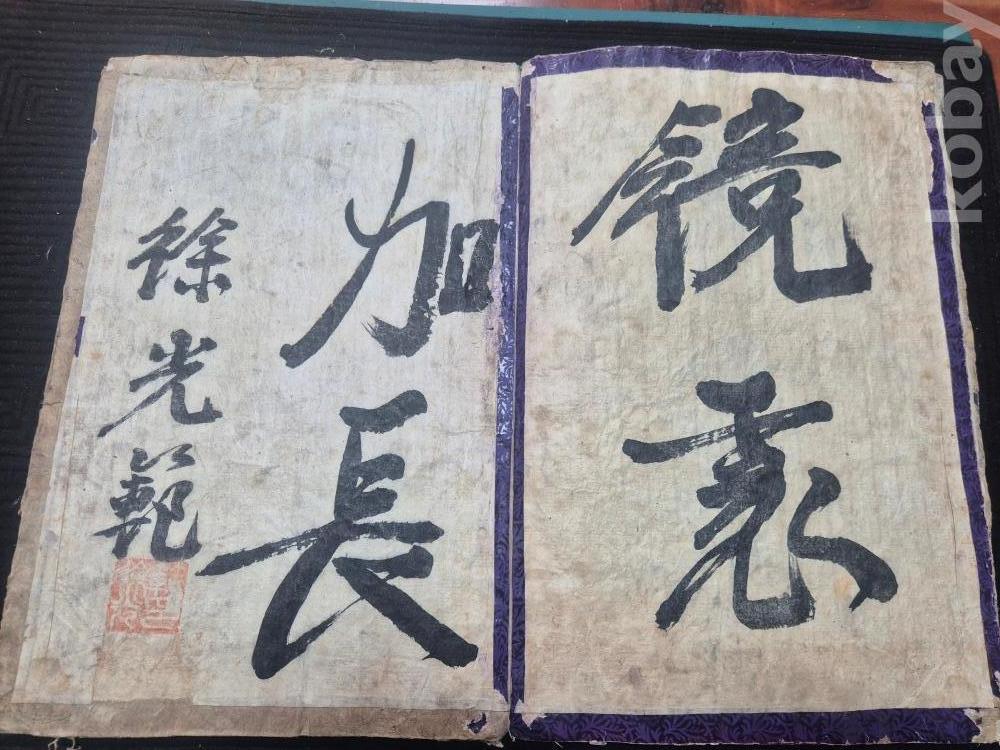 鏡裏
加長
徐光範
kobay